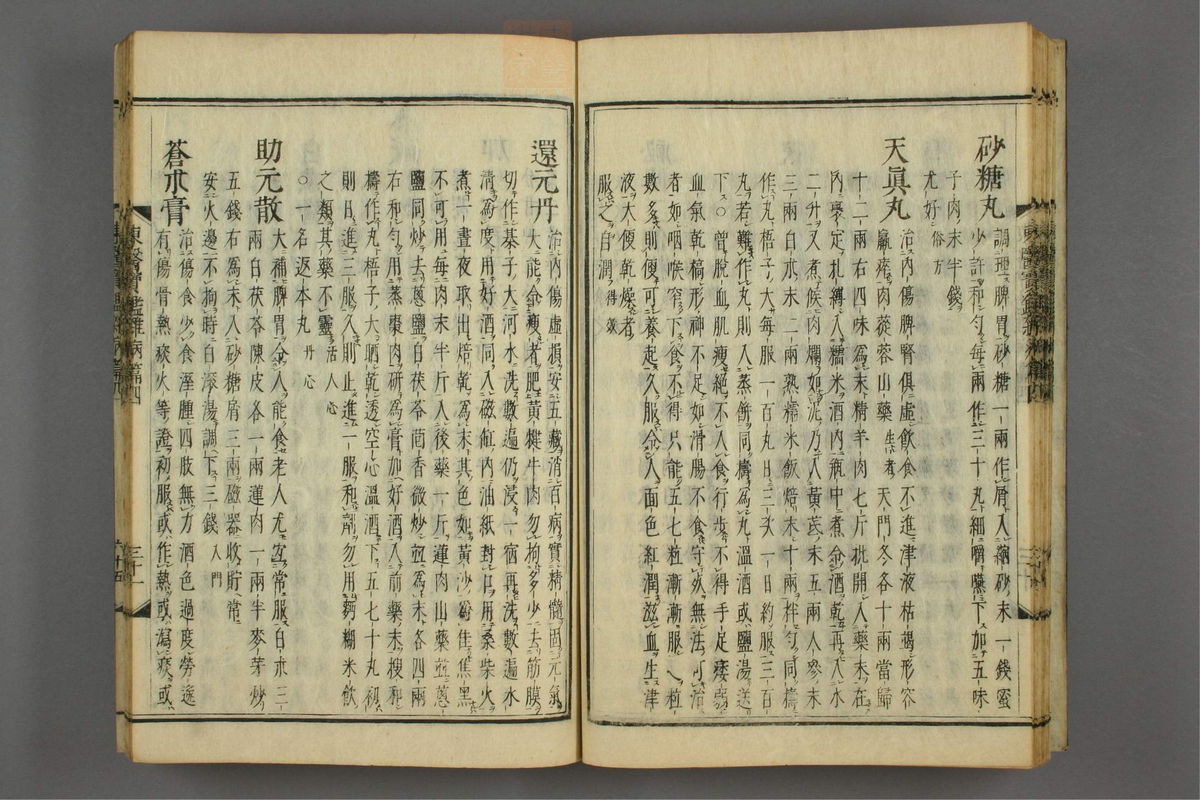 砂糖丸
調理脾胃砂糖一兩作屑入縮砂末一錢蜜
少許和勻每一兩作三十丸細嚼嚥下加五味
子肉末半錢
尤好 俗方
天眞丸
治內傷脾腎俱虛飮食不進津液枯竭形容
羸瘁肉蓯蓉山藥 生者 天門冬各十兩當歸
十二兩右四味爲末精羊肉七斤批開入藥末在
內裹定扎縛入糯米酒內瓶中煮令酒乾再入水
二升又煮候肉爛如泥乃入黃芪末五兩人參末
三兩白朮末二兩熟糯米飯焙末十兩拌勻同擣
作丸梧子大每服一百丸日二三次一日約服三百
丸若難作丸則入蒸餠同擣爲丸溫酒或鹽湯送
下○曾脫血肌瘦絶不入食行步不得手足痿弱
血氣乾槁形神不足如滑腸不食守死無法可治
者如咽喉窄下食不得只能五七粒漸漸服之粒
數多則便可養起久服令人面色紅潤滋血生津
液大便乾燥者
服之自潤 得效
還元丹
治內傷虛損安五藏消百病實精髓固元氣
大能令瘦者肥黃犍牛肉勿拘多少去筋膜
切作棊子大河水洗數遍仍浸一宿再洗數遍水
淸爲度用好酒同入磁缸內油紙封口用桑柴火
煮一晝夜取出焙乾爲末其色如黃沙爲佳焦黑
不可用每肉末半斤入後藥一斤蓮肉山藥並蔥
鹽同炒去蔥鹽白茯苓茴香微炒並爲末各四兩
右和勻用蒸棗肉硏爲膏加好酒入前藥末搜和
擣作丸梧子大晒乾透空心溫酒下五七十丸初
則日進三服久則止進一服和劑勿用麪糊米飮
之類其藥不靈 活人心
○一名返本丸 丹心
助元散
大補脾胃令人能食老人尤宜常服白朮三
兩白茯苓陳皮各一兩蓮肉一兩半麥芽炒
五錢右爲末入砂糖屑三兩磁器收貯常
安火邊不拘時白滾湯調下三錢 入門
蒼朮膏
治傷食少食溼腫四肢無力酒色過度勞逸
有傷骨熱痰火等證初服或作熱或瀉痰或